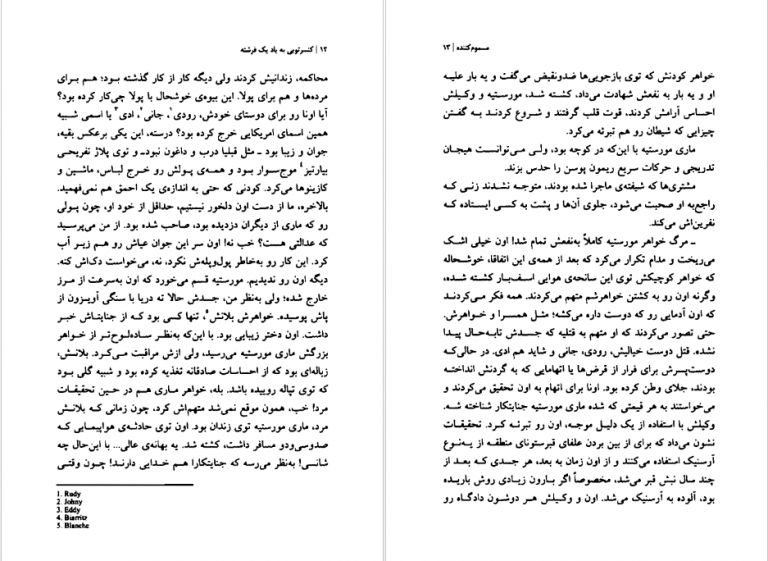 ۱۲ | کنسرتویی به یاد یک فرشته
محاکمه، زندانیش کردند ولی دیگه کار از کار گذشته بود؛ هم برای
مرده‌ها و هم برای پولا. این بیوه‌ی خوشحال با پولا چی‌کار کرده بود؟
آیا اونا رو برای دوستای خودش، رودی۱، جانی۲، ادی۳ یا اسمی شبیه
همین اسمای امریکایی خرج کرده بود؟ درسته، این یکی برعکس بقیه،
جوان و زیبا بود ـ مثل قبلیا درب و داغون نبود ـ و توی پلاژ تفریحی
بیارتیز۴ موج‌سوار بود و همه‌ی پولش رو خرج لباس، ماشین و
کازینوها می‌کرد. کودنی که حتی به اندازه‌ی یک احمق هم نمی‌فهمید.
بالاخره، ما از دست اون دلخور نیستیم، حداقل از خود او، چون پولی
رو که ماری از دیگران دزدیده بود، صاحب شده بود. از من می‌پرسید
که عدالتی هست؟ خب نه! اون سر این جوان عیاش رو هم زیر آب
کرد. این کار رو به‌خاطر پول‌وپله‌ش نکرد، نه، می‌خواست دک‌اش کنه.
دیگه اون رو ندیدیم. موریستیه قسم می‌خورد که اون به‌سرعت از مرز
خارج شده؛ ولی به‌نظر من، جسدش حالا ته دریا با سنگی آویزون از
پاش پوسیده. خواهرش بلانش۵، تنها کسی بود که از جنایتاش خبر
داشت. اون دختر زیبایی بود. با این‌که به‌نظر ساده‌لوح‌تر از خواهر
بزرگش ماری موریستیه می‌رسید، ولی ازش مراقبت می‌کرد. بلانش،
زباله‌ای بود که از احساسات صادقانه تغذیه کرده بود و شبیه گلی بود
که توی تپاله روییده باشد. بله، خواهر ماری هم در حین تحقیقات
مرد! خب، همون موقع نمی‌شد متهم‌اش کرد، چون زمانی که بلانش
مرد، ماری موریستیه توی زندان بود. اون توی حادثه‌ی هواپیمایی که
صدوسی‌ودو مسافر داشت، کشته شد. یه بهانه‌ی عالی... با این‌حال چه
شانسی! به‌نظر می‌رسه که جنایتکارا هم خدایی دارند! چون وقتی
1. Rudy
2. Johny
3. Eddy
4. Biarritz
5. Blanche
مسموم‌کننده | ۱۳
خواهر کودنش که توی بازجویی‌ها ضدونقیض می‌گفت و یه بار علیه
او و یه بار به نفعش شهادت می‌داد، کشته شد، موریستیه و وکیلش
احساس آرامش کردند، قوت قلب گرفتند و شروع کردند به گفتن
چیزایی که شیطان رو هم تبرئه می‌کرد.
ماری موریستیه با این‌که در کوچه بود، ولی می‌توانست هیجان
تدریجی و حرکات سریع ریمون پوسن را حدس بزند.
مشتری‌ها که شیفته‌ی ماجرا شده بودند، متوجه نشدند زنی که
راجع‌به او صحبت می‌شود، جلوی آن‌ها و پشت به کسی ایستاده که
نفرین‌اش می‌کند.
ـ مرگ خواهر موریستیه کاملاً به‌نفعش تمام شد! اون خیلی اشک
می‌ریخت و مدام تکرار می‌کرد که بعد از همه‌ی این اتفاقا، خوشحاله
که خواهر کوچیکش توی این سانحه‌ی هوایی اسف‌بار کشته شده،
وگرنه اون رو به کشتن خواهرشم متهم می‌کردند. همه فکر می‌کردند
که اون آدمایی رو که دوست داره می‌کشه؛ مثل همسرا و خواهرش.
حتی تصور می‌کردند که او متهم به قتلیه که جسدش تابه‌حال پیدا
نشده. قتل دوست خیالیش، رودی، جانی و شاید هم ادی. در حالی‌که
دوست‌پسرش برای فرار از قرض‌ها یا اتهامایی که به گردنش انداخته
بودند، جلای وطن کرده بود. اونا برای اتهام به اون تحقیق می‌کردند و
می‌خواستند به هر قیمتی که شده ماری موریستیه جنایتکار شناخته شه.
وکیلش با استفاده از یک دلیل موجه، اون رو تبرئه کرد. تحقیقات
نشون می‌داد که برای از بین بردن علفای قبرستونای منطقه از یه‌نوع
آرسنیک استفاده می‌کنند و از اون زمان به بعد، هر جسدی که بعد از
چند سال نبش قبر می‌شد، مخصوصاً اگر بارون زیادی روش باریده
بود، آلوده به آرسنیک می‌شد. اون و وکیلش هر دوشون دادگاه رو